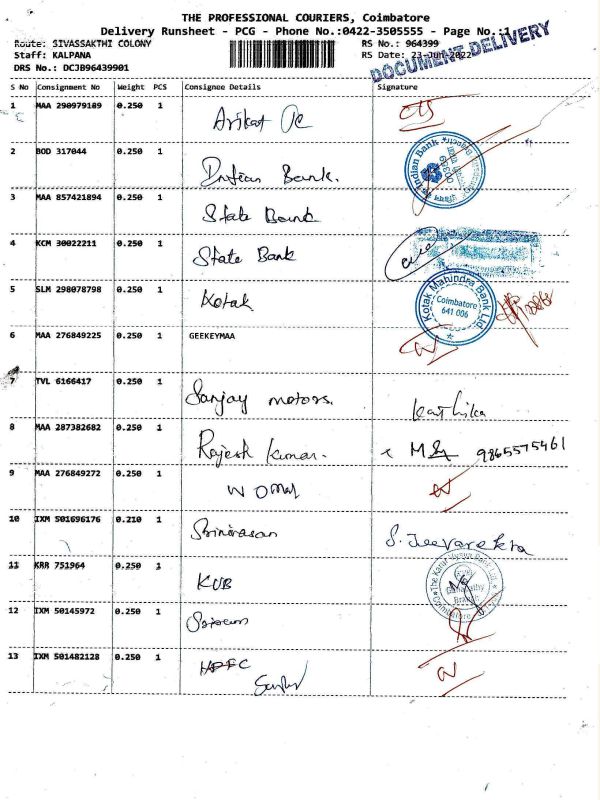 THE PROFESSIONAL COURIERS, Coimbatore
Delivery Runsheet - PCG - Phone No.:0422-3505555 - Page No.:1
Route: SIVASSAKTHI COLONY RS No.: 964399
Staff: KALPANA RS Date: 23-Jun-2022
DRS No.: DCJB96439901
DOCUMENT DELIVERY
S No Consignment No Weight PCS Consignee Details Signature
1 MAA 290979189 0.250 1
2 BOD 317044 0.250 1 Indian Bank.
Indian Bank
3 MAA 857421894 0.250 1 State Bank
4 KCM 30022211 0.250 1 State Bank
5 SLM 298078798 0.250 1 Kotak
Kotak Mahindra Bank Ltd
Coimbatore
641 006
6 MAA 276849225 0.250 1 GEEKEYMAA
7 TVL 6166417 0.250 1 Sanjay motors. Karthika
8 MAA 287382682 0.250 1 Rajesh Kumar. 9865575461
9 MAA 276849272 0.250 1
10 IXM 501696176 0.210 1 Srinivasan S. Jeevarekha
11 KRR 751964 0.250 1 KVB
Branch
12 IXM 50145972 0.250 1
13 IXM 501482128 0.250 1 HDFC